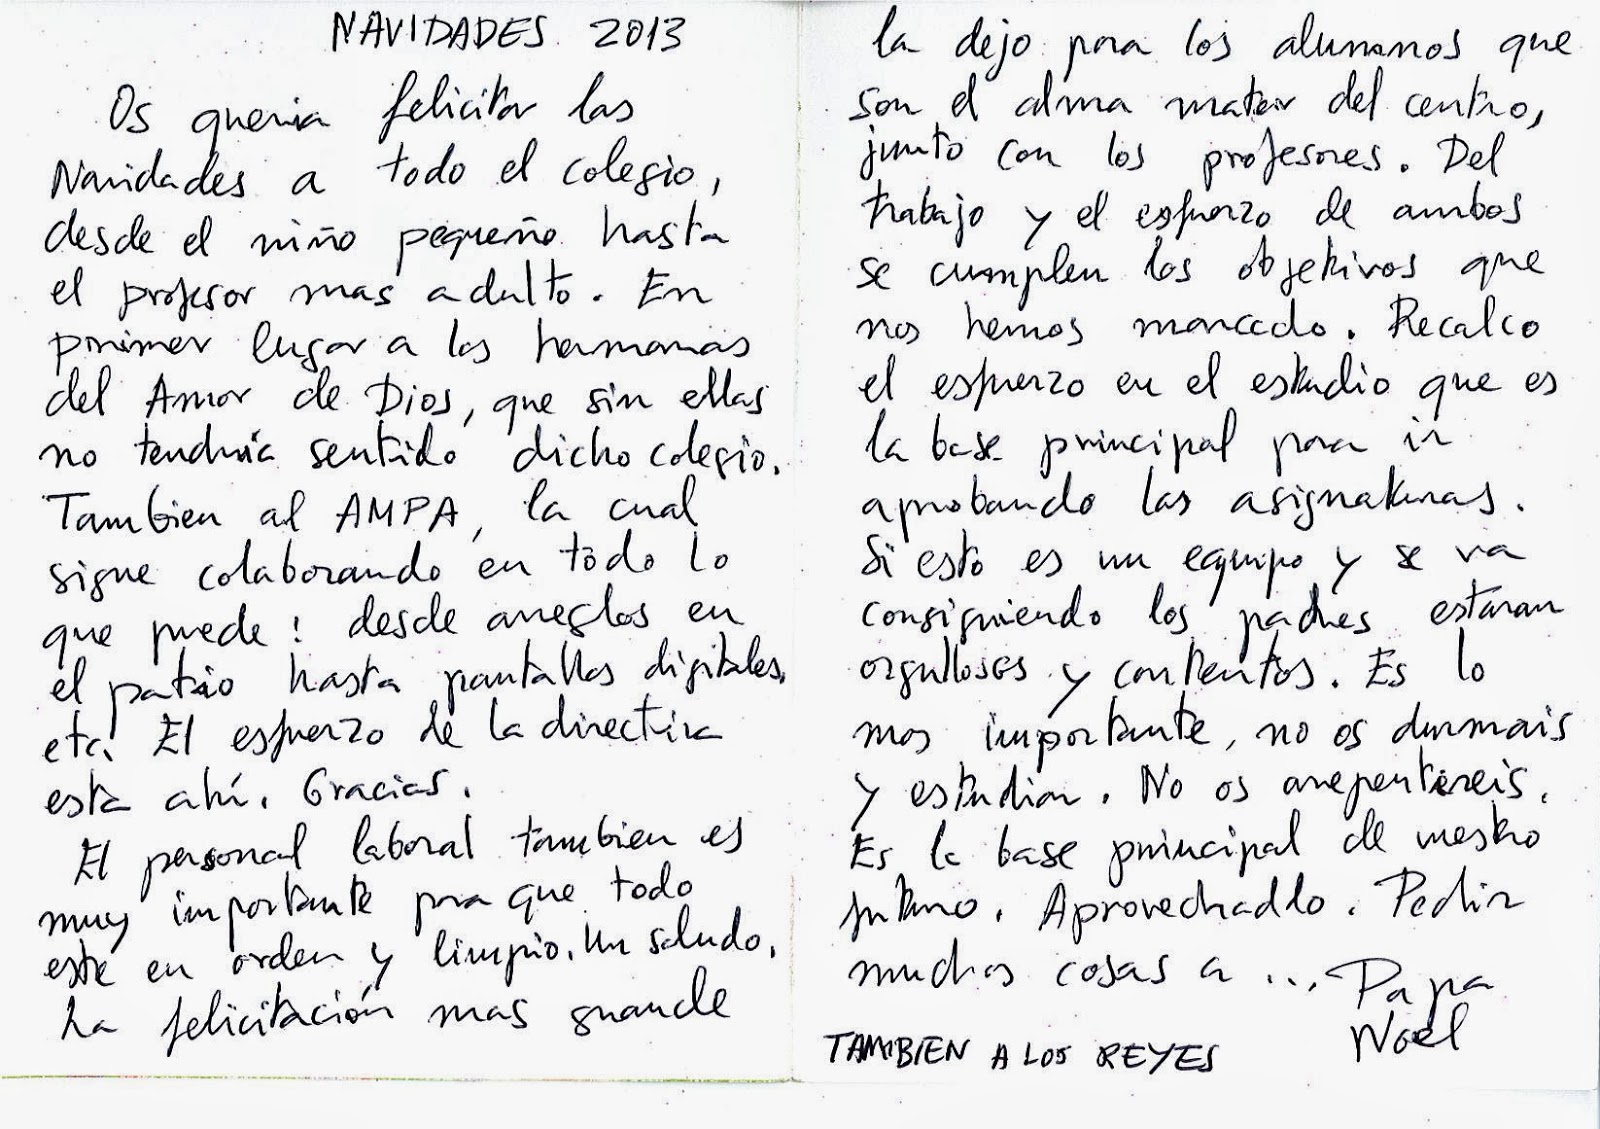 NAVIDADES 2013
Os queria felicitar las
Navidades a todo el colegio,
desde el niño pequeño hasta
el profesor mas adulto. En
primer lugar a las hermanas
del Amor de Dios, que sin ellas
no tendria sentido dicho colegio.
Tambien al AMPA, la cual
sigue colaborando en todo lo
que puede: desde arreglos en
el patio hasta pantallas digitales,
etc. El esfuerzo de la directiva
esta ahí. Gracias.
El personal laboral tambien es
muy importante para que todo
este en orden y limpio. Un saludo.
La felicitación mas grande
la dejo para los alumnos que
son el alma mater del centro,
junto con los profesores. Del
trabajo y el esfuerzo de ambos
se cumplen los objetivos que
nos hemos marcado. Recalco
el esfuerzo en el estudio que es
la base principal para ir
aprobando las asignaturas.
Si esto es un equipo y se va
consiguiendo los padres estaran
orgullosos y contentos. Es lo
mas importante, no os durmais
y estudiar. No os arrepentireis.
Es la base principal de vuestro
futuro. Aprovechadlo. Pedir
muchas cosas a ... Papa
Noel
TAMBIEN A LOS REYES